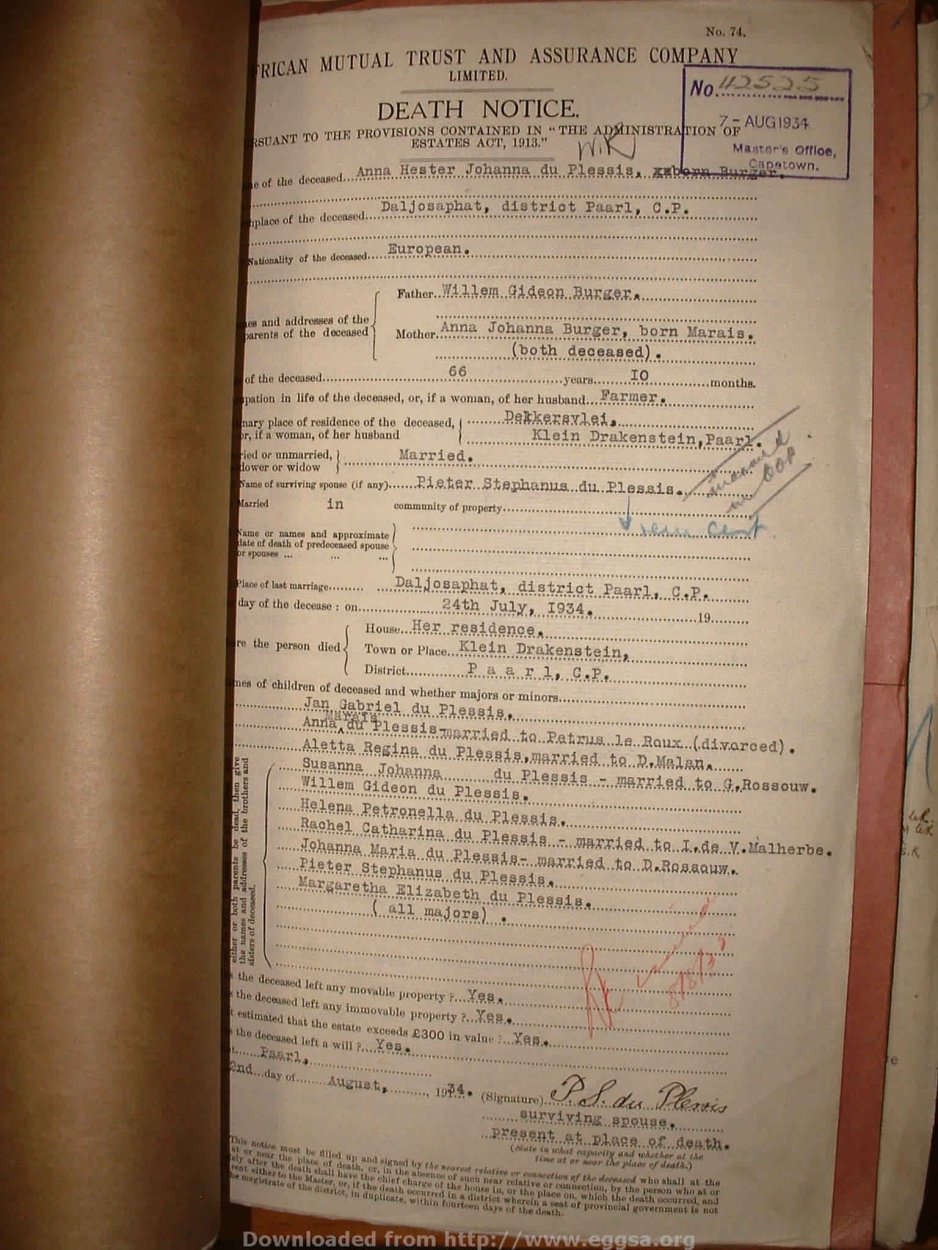 No. 74.
RICAN MUTUAL TRUST AND ASSURANCE COMPANY
LIMITED.
No. 42525
7 - AUG 1934
Master's Office,
Capetown.
DEATH NOTICE.
RSUANT TO THE PROVISIONS CONTAINED IN "THE ADMINISTRATION OF
ESTATES ACT, 1913."
e of the deceased Anna Hester Johanna du Plessis, born Burger.
place of the deceased Daljosaphat, district Paarl, C.P.
Nationality of the deceased European.
Father Willem Gideon Burger.
es and addresses of the
parents of the deceased
Mother Anna Johanna Burger, born Marais.
(both deceased).
of the deceased 66 years IO months.
pation in life of the deceased, or, if a woman, of her husband Farmer.
nary place of residence of the deceased, Dekkersvlei,
or, if a woman, of her husband Klein Drakenstein, Paarl.
ried or unmarried, Married.
dower or widow
Name of surviving spouse (if any) Pieter Stephanus du Plessis.
married
in COP
Married in community of property
Name or names and approximate
date of death of predeceased spouse
or spouses ... ... ...
Place of last marriage Daljosaphat, district Paarl, C.P.
day of the decease : on 24th July, I934. 19
House Her residence.
re the person died Town or Place Klein Drakenstein,
District P a a r l, C.P.
mes of children of deceased and whether majors or minors
Jan Gabriel du Plessis.
Marais
Anna du Plessis-married to Petrus le Roux (divorced).
Aletta Regina du Plessis, married to D.Malan.
Susanna Johanna du Plessis - married to G,Rossouw.
Willem Gideon du Plessis.
Helena Petronella du Plessis.
Rachel Catharina du Plessis - married to I.de V.Malherbe.
Johanna Maria du Plessis- married to D.Rossouw.
Pieter Stephanus du Plessis.
Margaretha Elizabeth du Plessis.
( all majors) .
either or both parents be dead, then give
the names and addresses of the brothers and
sisters of deceased.
the deceased left any movable property ? Yes.
the deceased left any immovable property ? Yes.
t estimated that the estate exceeds £300 in value ? Yes.
the deceased left a will ? Yes.
Paarl,
2nd day of August, 1934.
(Signature) P. S. du Plessis
surviving spouse.
present at place of death.
(State in what capacity and whether at the
time at or near the place of death.)
This notice must be filled up and signed by the nearest relative or connection of the deceased who shall at the
at or near the place of death, or, in the absence of such near relative or connection, by the person who at or
ely after the death shall have the chief charge of the house in, or the place on, which the death occurred, and
sent either to the Master, or, if the death occurred in a district wherein a seat of provincial government is not
he magistrate of the district, in duplicate, within fourteen days of the death.
Downloaded from http://www.eggsa.org